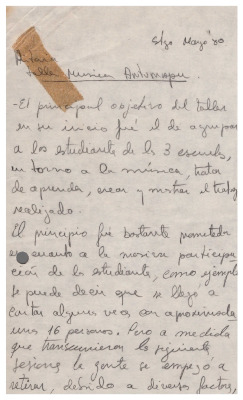 Stgo Mayo '80
Taller Musica Antumapu
- El principal objetivo del taller
en su inicio fué el de agrupar
a los estudiantes de las 3 escuelas,
en torno a la música, tratar
de aprender, crear y mostrar el trabajo
realizado.
Al principio fue bastante prometedor
en cuanto a la masiva participa
ción de los estudiantes, como ejemplo
se puede decir que se llegó a
contar algunas veces con aproximada
unas 16 personas. Pero a medida
que transcurrieron las siguientes
sesiones la gente se empezó a
retirar, debido a diversos factores,